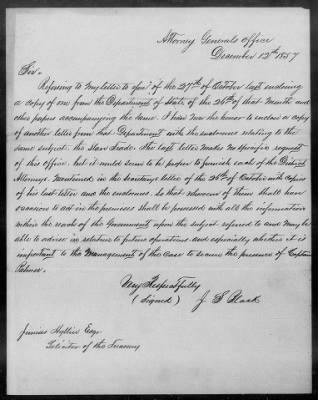 Attorney Generals Office
December 12th 1857
Sir.
Referring to my letter to you of the 27th of October last enclosing
a copy of one from the Department of State of the 24th of that Month and
other papers accompanying the same. I have now the honor to enclose a copy
of another letter from that Department with the enclosures relating to the
same subject: the Slave Trade. The last letter makes no specific request
of this office, but it would seem to be proper to furnish each of the District
Attorneys mentioned in the Secretarys letter of the 24th of October with copies
of his last letter and the enclosures. So that whosoever of them shall have
occasion to act in the premises shall be possessed with all the information
within the reach of the Government upon the subject referred to and may be
able to advise in relation to future operations and especially whether it is
important to the Management of the case to secure the presence of Captain
Palmer.
Very Respectfully
(Signed) J. S. Black
Junius Hillyer Esqr
Solicitor of the Treasury